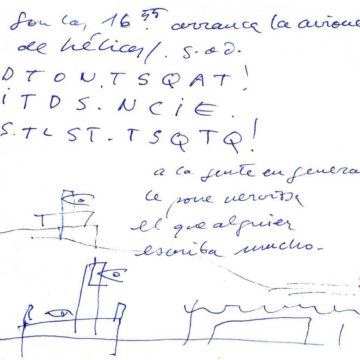 Son las 16⁵⁵. arranca la avione
de hélices/. S.O.D.
D T O N. T S Q A T !
i T D S. N C i E.
S. T L S T - T S Q T Q !
a la gente en genera
le pone nerviosa
el que alguien
escriba mucho.